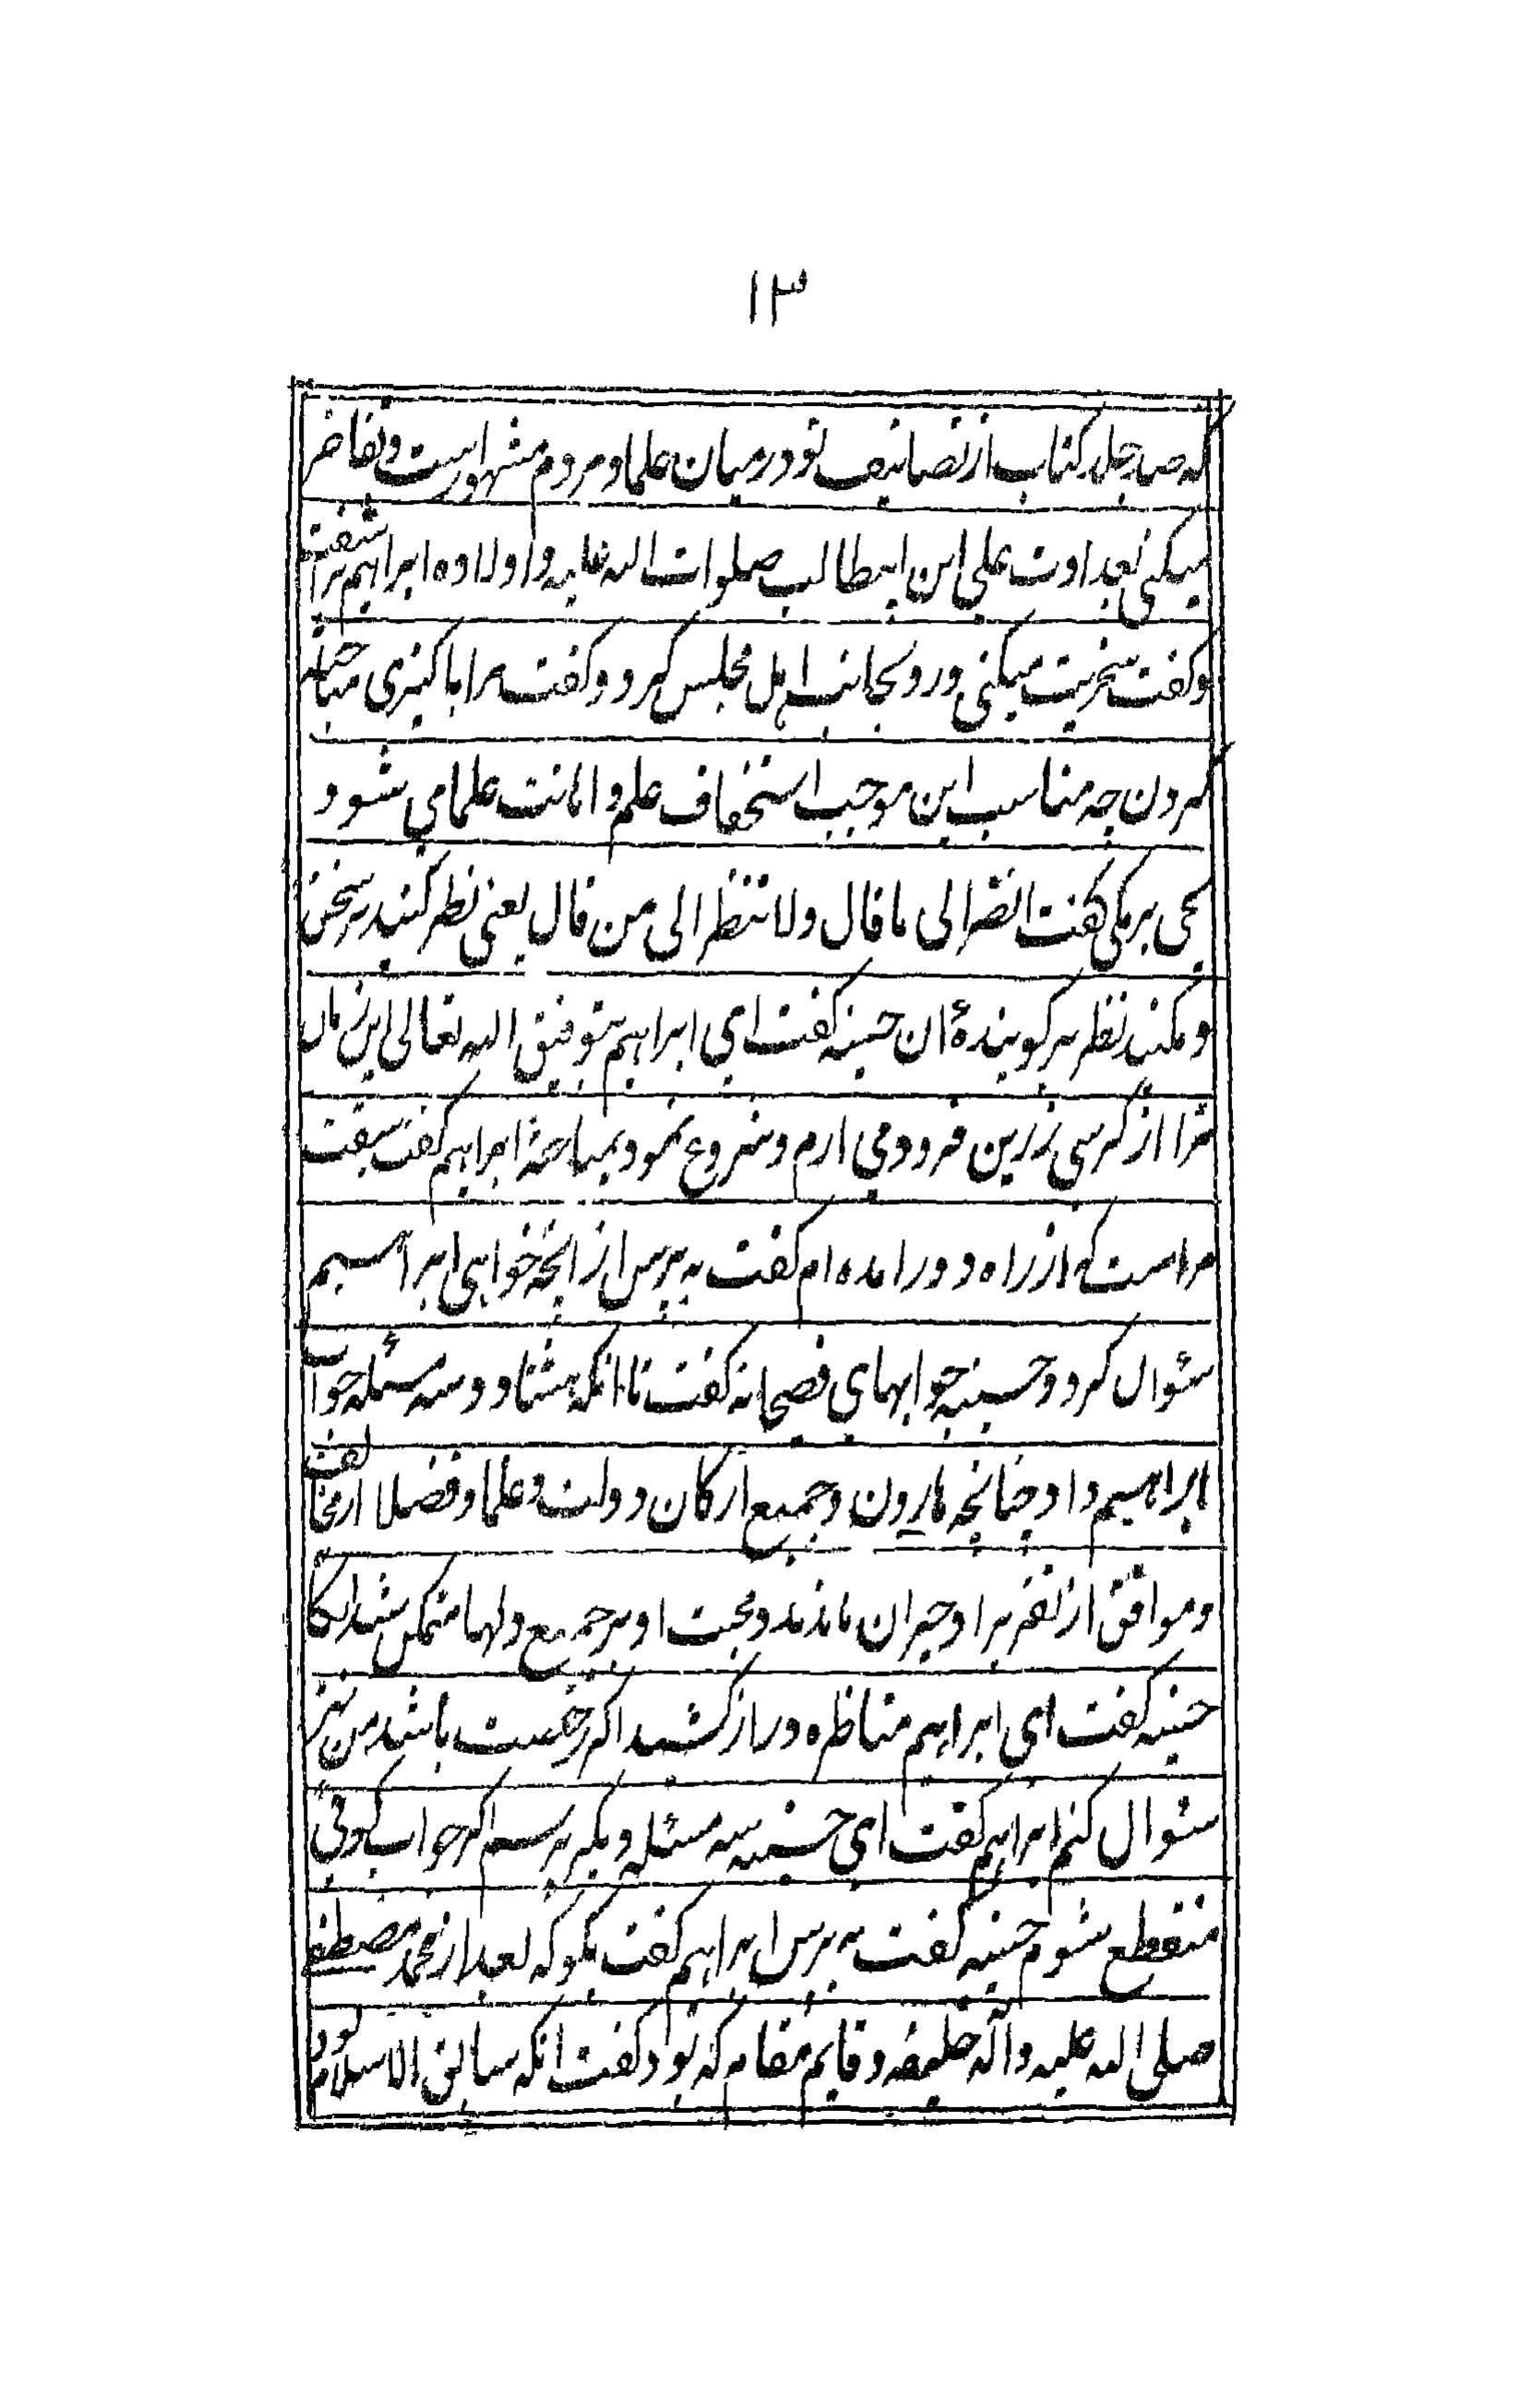 ۱۳
که صد جلد کتاب از تصانیف تو در میان علما و مردم مشهور است و تفاخر
میکنی بعداوت علی ابن ابیطالب صلوات الله علیه و اولاده ابراهیم بر آشفت
و کفت سخریت میکنی و رو بجانب اهل مجلس کرد و کفت مرا با کنیزی مباحثه
کردن چه مناسب این موجب استخفاف علم و اهانت علما می شود
یحیی برمکی کفت انظر الی ما قال ولا تنظر الی من قال یعنی نظر کنید بر سخن
و مکنید نظر بر کوینده ان حسنیه کفت ای ابراهیم بتوفیق الله تعالی این زمان
ترا از کرسی زرین فرود می ارم و شروع نمود بمباحثه ابراهیم کفت سبقت
مراست که از راه دور امده ام کفت به پرس از انچه خواهی ابراهیم
سئوال کرد و حسنیه جوابهای فصیحانه کفت تا انکه هشتاد و سه مسئله جواب
ابراهیم داد چنانچه هارون و جمیع ارکان دولت و علما و فضلا از مخالف
و موافق از تقریر او حیران ماندند و محبت او بر جمیع دلها متمکن شد انکاه
حسنیه کفت ای ابراهیم مناظره دراز کشید اکر رخصت باشد من نیز
سئوال کنم ابراهیم کفت ای حسنیه سه مسئله دیکر پرسم اکر جواب کوئی
منقطع شوم حسنیه کفت به پرس ابراهیم کفت بکو که بعد از محمد مصطفی
صلی الله علیه و آله خلیفه و قایم مقام که بود کفت انکه سابق الاسلام بود